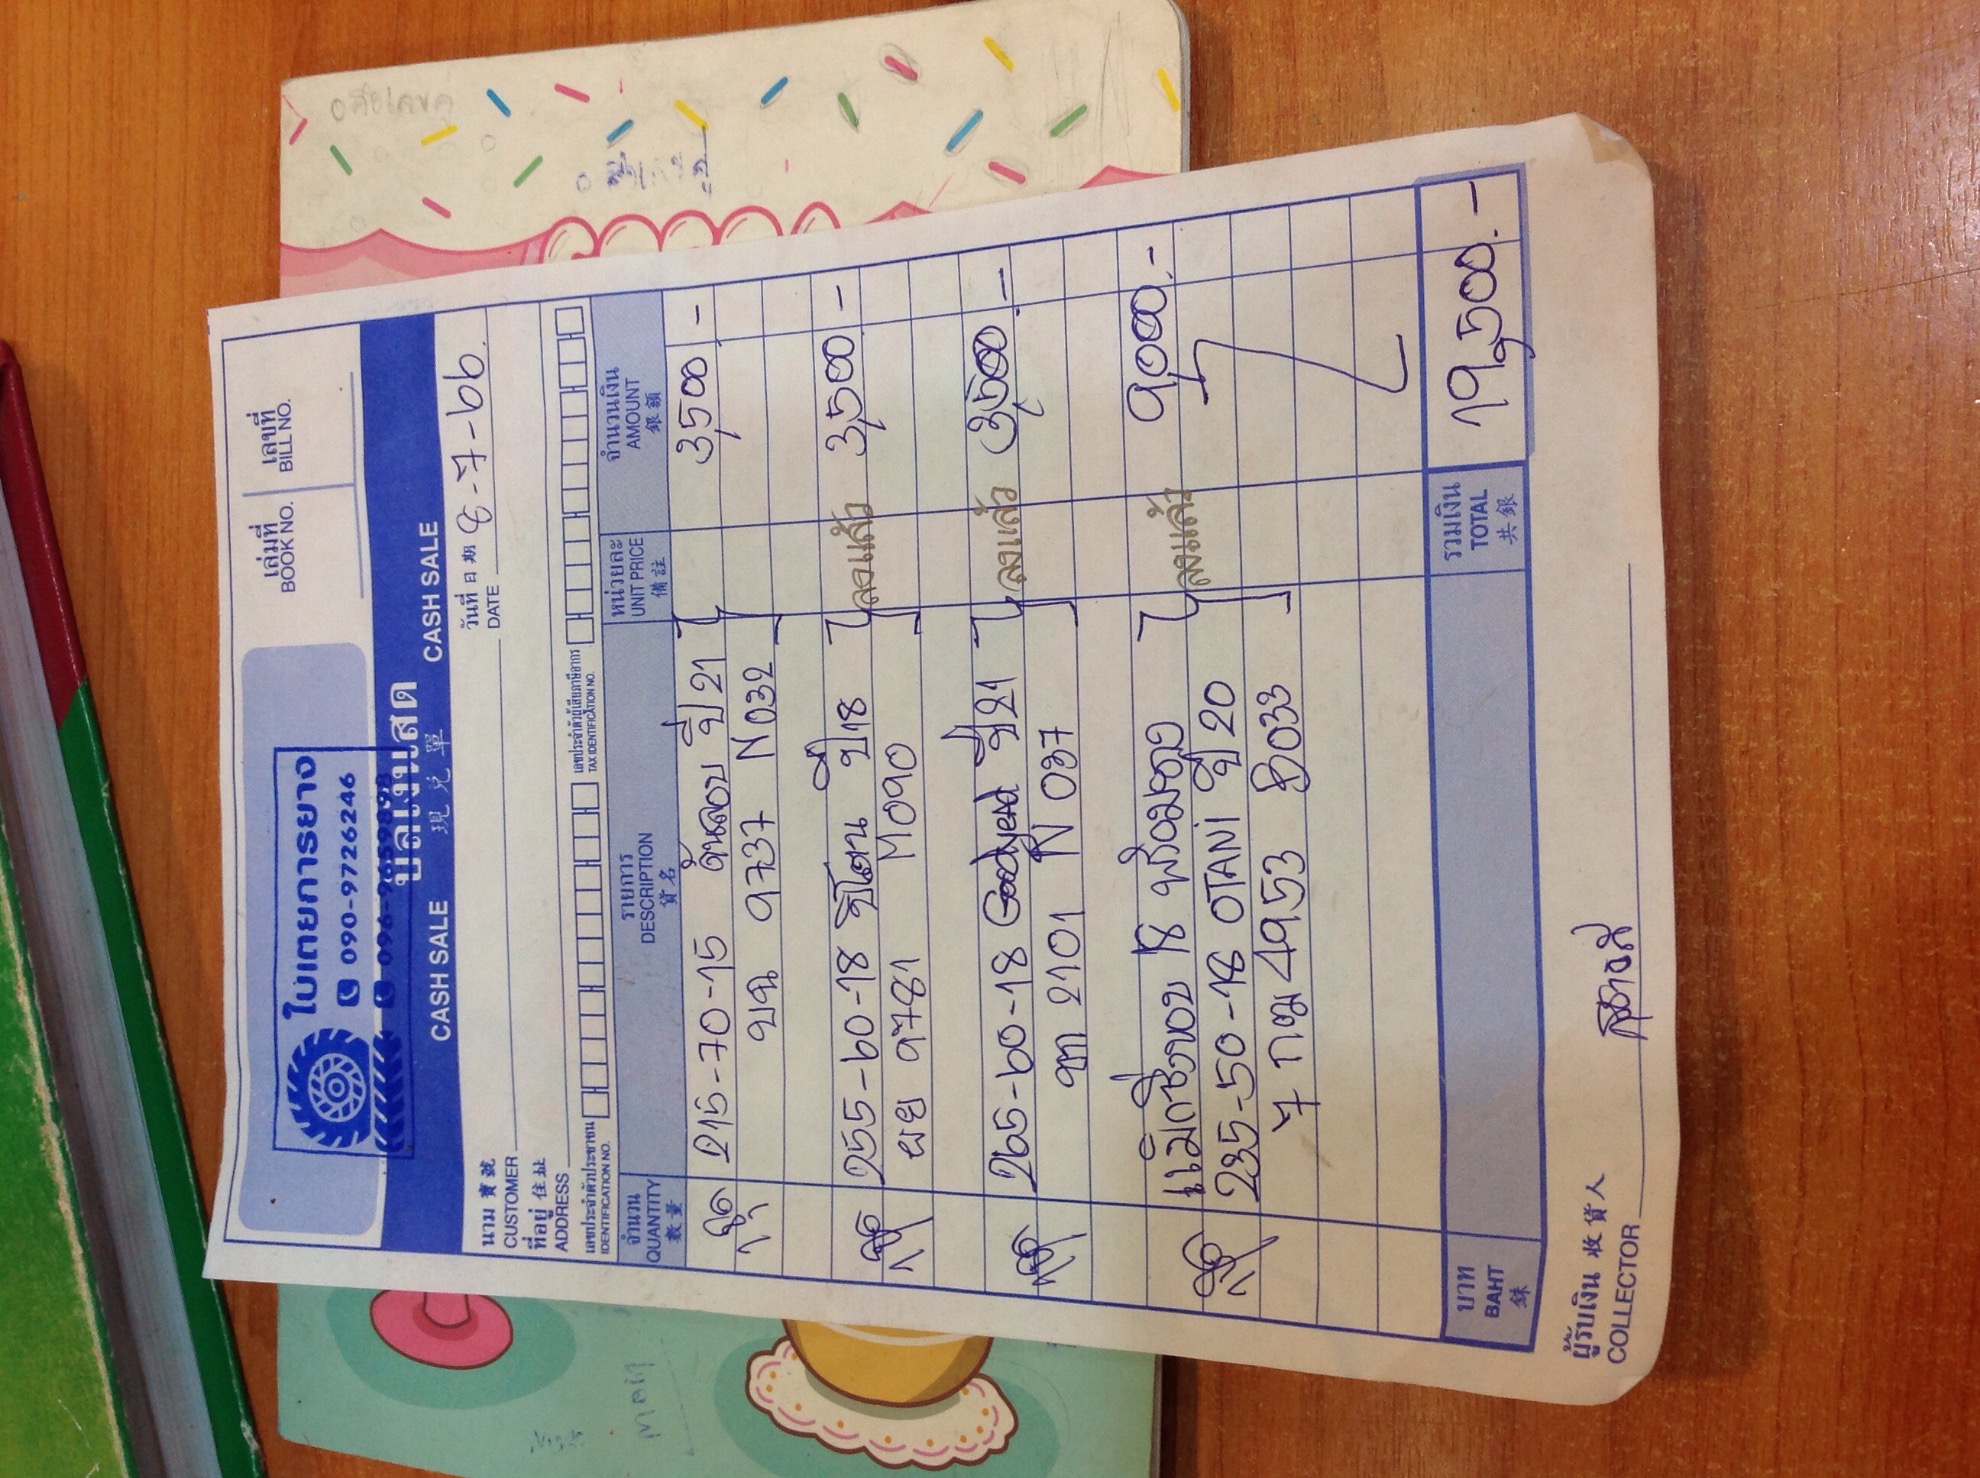 ใบเตยการยาง
090-9726246
096-9659898
เล่มที่ เลขที่
BOOK NO. BILL NO.
บิลเงินสด
CASH SALE 現兌單 CASH SALE
นาม 寶號 วันที่ 日期 8-7-66.
CUSTOMER DATE
ที่อยู่ 住址
ADDRESS
เลขประจำตัวประชาชน เลขประจำตัวผู้เสียภาษีอากร
IDENTIFICATION NO. TAX IDENTIFICATION NO.
จำนวน รายการ หน่วยละ จำนวนเงิน
QUANTITY DESCRIPTION UNIT PRICE AMOUNT
數量 貨名 備註 銀額
215-70-15 ดันลอป ปี 21 3,500 -
บฉ 9737 N032
255-60-18 ปี 18 ลงแล้ว 3,500 -
ผย 9781 M090
265-60-18 Goodyear ปี 21 ลงแล้ว 3,500 -
2101 N 037
แม็กซึ่งขอบ 18 พร้อมยาง 9,000.-
235-50-18 OTANI ปี 20 ลงแล้ว
7 กฒ 4953 B033
บาท รวมเงิน 19,500.-
BAHT TOTAL
銖 共銀
ผู้รับเงิน 收貨人
COLLECTOR